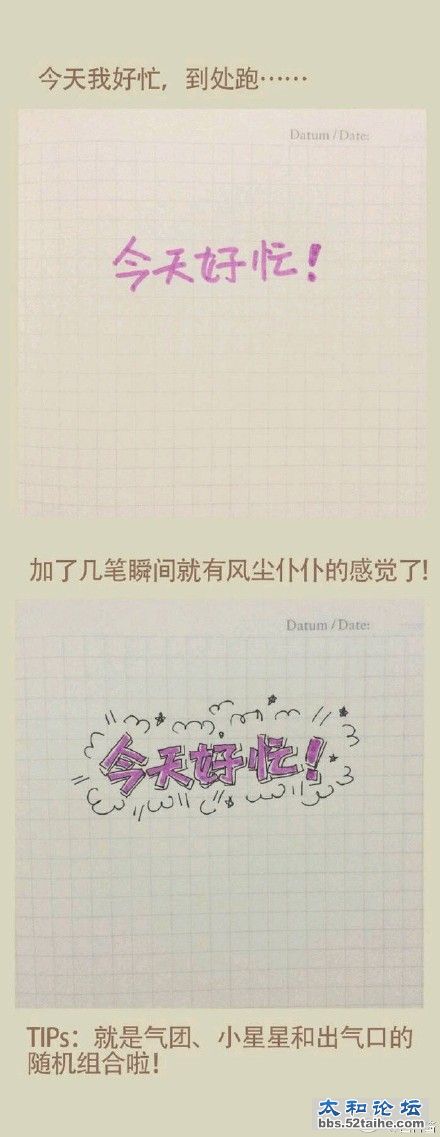 今天我好忙，到处跑……
Datum / Date:
今天好忙！
加了几笔瞬间就有风尘仆仆的感觉了!
Datum / Date:
今天好忙！
TIPs：就是气团、小星星和出气口的
随机组合啦!
太和论坛
bbs.52taihe.com